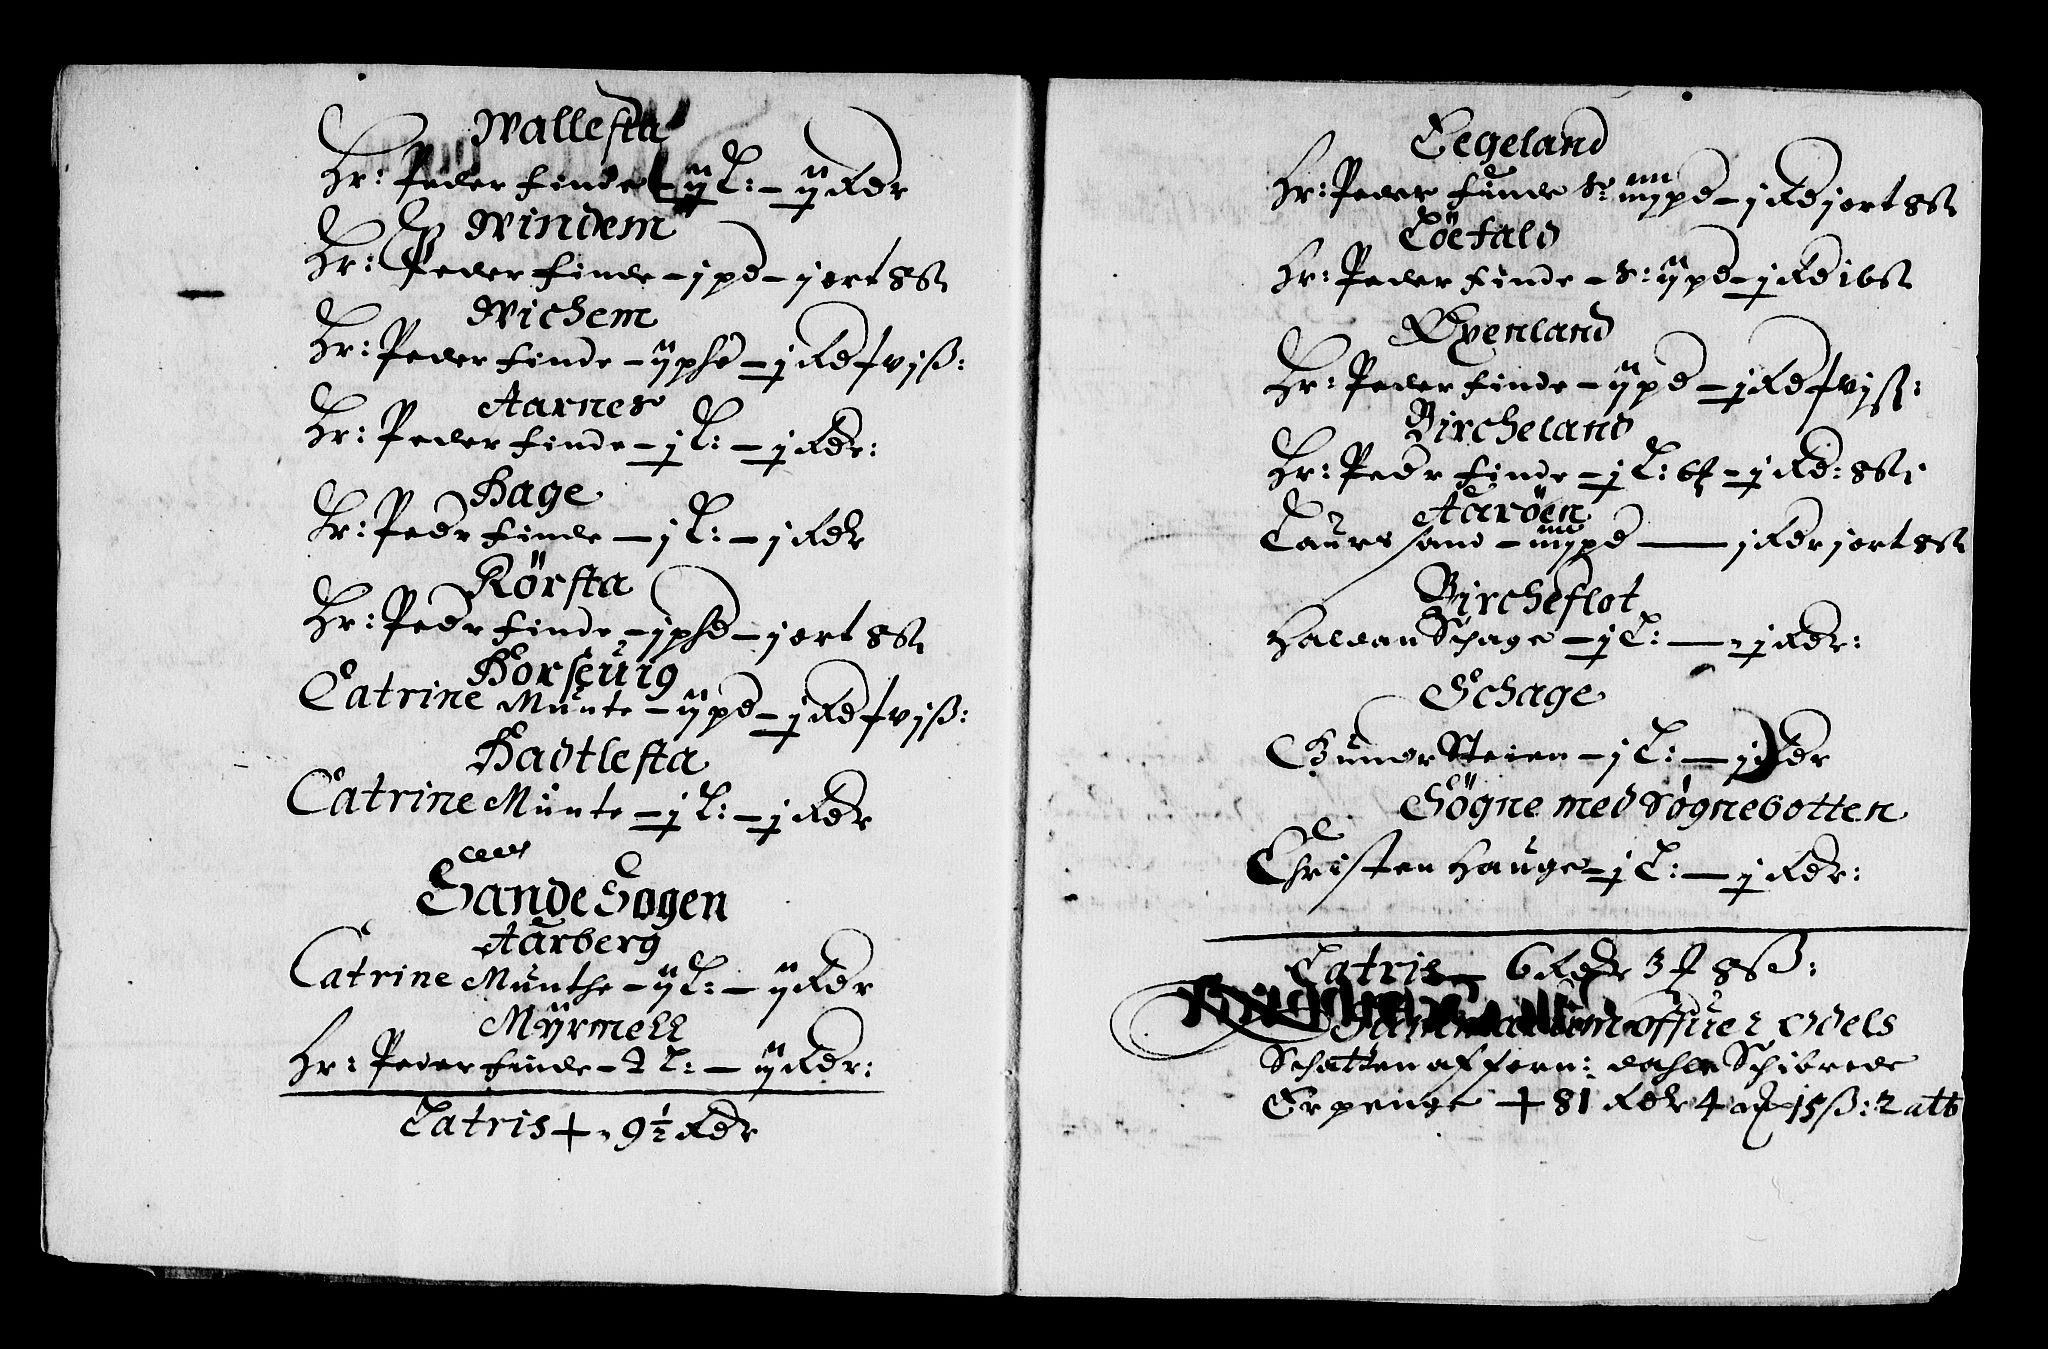 Wallesta
Hr: Peder finde – ij L: – ij Rdr
Windem
Hr: Peder finde – j pd – j ort 8 s:
Wichem
Hr: Peder finde – ij phd – j Rd j v jß:
Aarnes
Hr: Peder finde – j L: – j Rdr:
Hage
Hr: Pedr finde – j L: – j Rdr
Körsta
Hr: Pedr finde – j phd – j ort 8 s:
Horseuig
Catrine Munte – ij pd – j Rd j v jß:
Hadtlesta
Catrine Munte – j L: – j Rdr
Sande Sogen
Aarberg
Catrine Munthe – ij L: – ij Rdr
Myrmell
Hr: Peder finde – 2 L: – ij Rdr:
Latris + 9½ Rdr
Eegeland
Hr: Peder finde s: iiij pd – j Rd j ort 8 s:
Löefald
Hr: Peder finde – s: ij pd – j Rd 16 s
Öyenland
Hr: Peder finde – ij pd – j Rd j v jß:
Bircheland
Hr: Pedr finde – j L: 6 – j Rd: 8 s:
Aaröen
Laurs sand – iiij pd — j Rdr j ort 8 s:
Bircheflot
Haldan Schage – j L: — j Rdr:
Schage
Gunder Steien – j L: — j Rdr
Sögne med Søgnebotten
Christen Hauge – j L: — j Rdr:
Latris – 6 Rdr 3 8 sß:
offuer Odels
Schatten aff dahls Schibrede
Er penge + 81 Rdr 4 15 ß: 2 alb